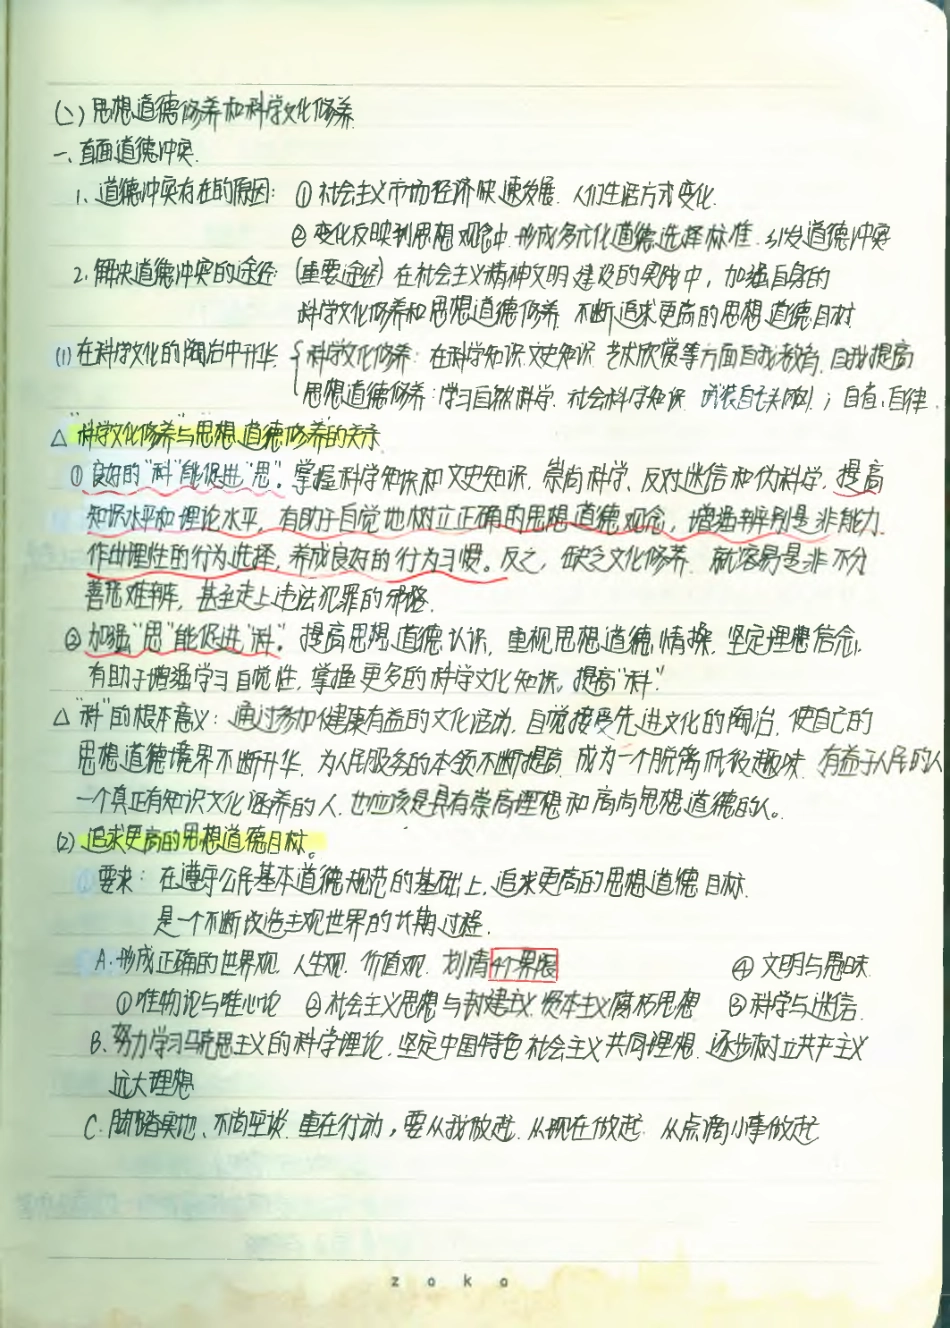 (二) 思想道德修养和科学文化修养
一、直面道德冲突.
1、道德冲突存在的原因: ① 社会主义市场经济快速发展. 人们生活方式变化.
② 变化反映到思想观念中. 形成多元化道德选择标准. 引发道德冲突
2. 解决道德冲突的途径: (重要途径) 在社会主义精神文明建设的实践中, 加强自身的
科学文化修养和思想道德修养. 不断追求更高的思想道德目标.
(1) 在科学文化的陶冶中升华. { 科学文化修养: 在科学知识.文史知识. 艺术欣赏等方面自我教育. 自我提高
思想道德修养: 学习自然科学. 社会科学知识. 武装自己头脑; 自查.自律.
△ "科学文化修养"与思想道德修养的关系.
① 良好的"科"能促进"思". 掌握科学知识和文史知识. 崇尚科学, 反对迷信和伪科学. 提高
知识水平和理论水平, 有助于自觉地树立正确的思想道德观念, 增强辨别是非能力.
作出理性的行为选择, 养成良好的行为习惯。反之, 缺乏文化修养. 就容易是非不分
善恶难辨, 甚至走上违法犯罪的邪路.
② 加强"思"能促进"科". 提高思想道德认识, 重视思想道德情操, 坚定理想信念.
有助于增强学习自觉性, 掌握更多的科学文化知识。提高"科".
△ "科"的根本意义: 通过参加健康有益的文化活动, 自觉接受先进文化的陶冶. 使自己的
思想道德境界不断升华. 为人民服务的本领不断提高. 成为一个脱离低级趣味. 有益于人民的人
一个真正有知识文化涵养的人. 也应该是具有崇高理想和高尚思想道德的人。
(2) 追求更高的思想道德目标。
① 要求: 在遵守公民基本道德规范的基础上, 追求更高的思想道德目标.
是一个不断改造主观世界的长期过程.
A. 形成正确的世界观. 人生观. 价值观. 划清4个界限 ④ 文明与愚昧.
① 唯物论与唯心论 ② 社会主义思想与封建主义.资本主义腐朽思想 ③ 科学与迷信.
B. 努力学习马克思主义的科学理论, 坚定中国特色社会主义共同理想. 逐步树立共产主义
远大理想
C. 脚踏实地、不尚空谈. 重在行动, 要从我做起. 从现在做起. 从点滴小事做起.
zoko